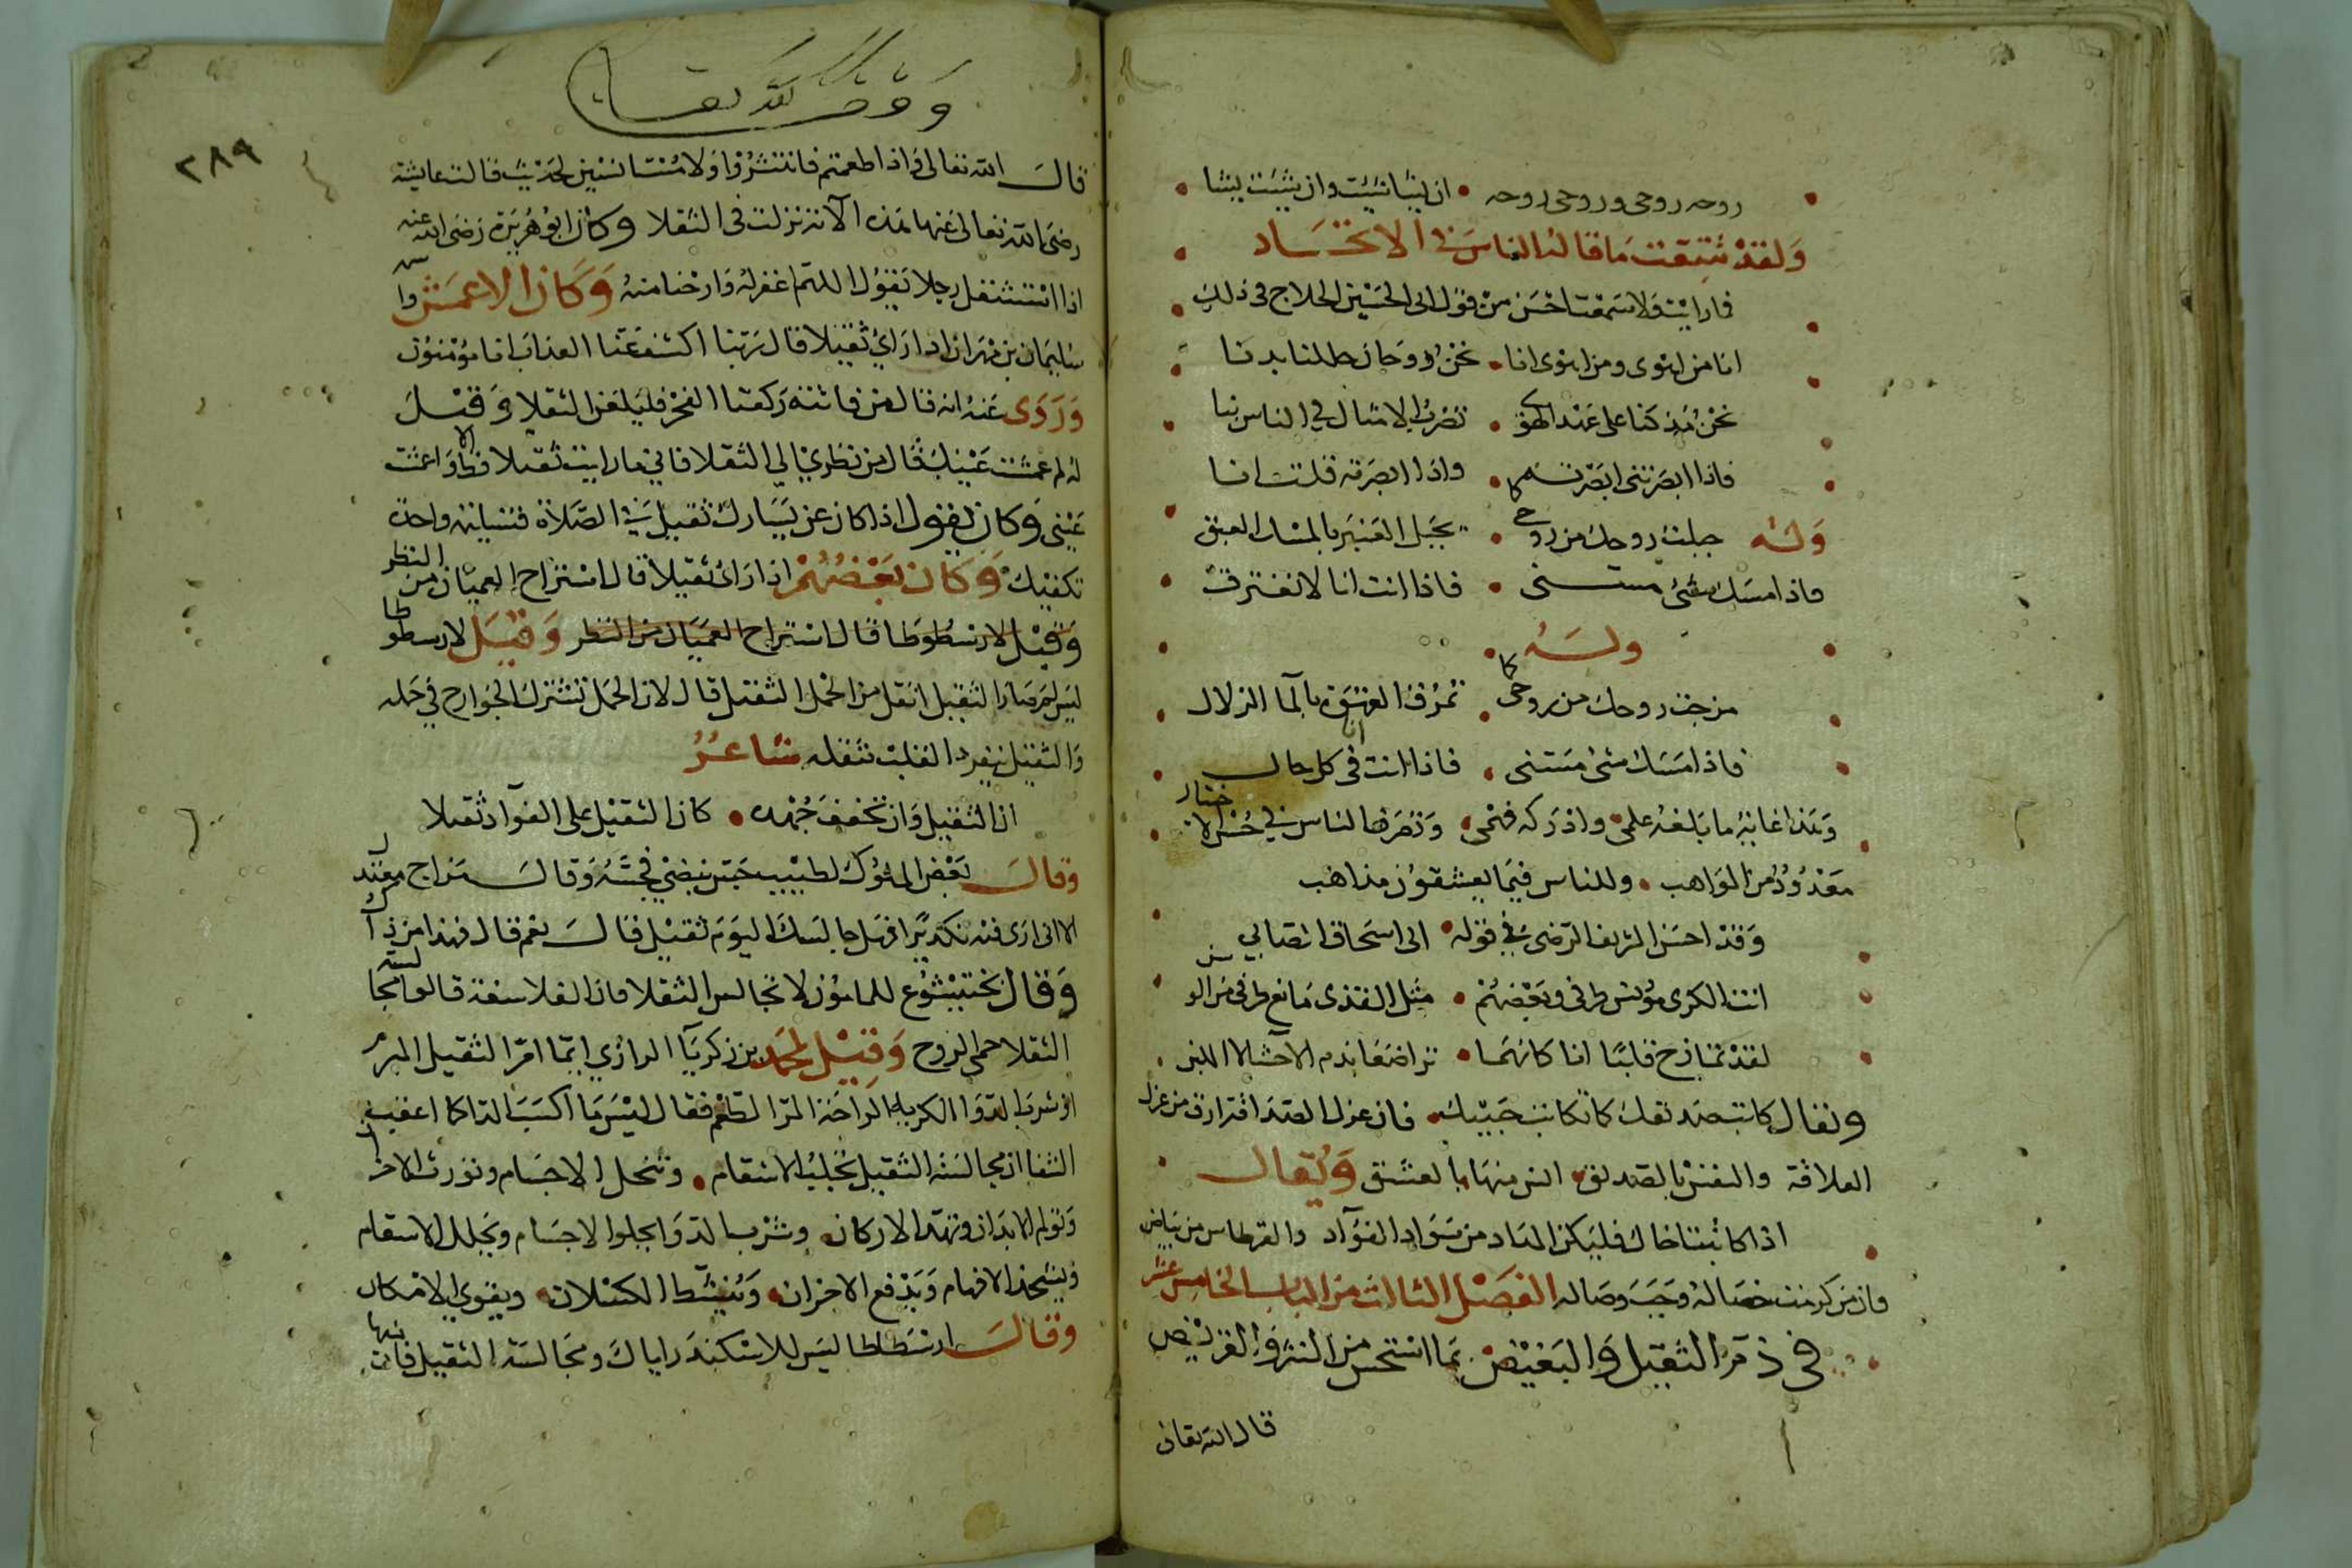 روحه روحى وروحى روحه • ان يشا شئت وان شئت يشا
ولقد شبقت ما قاله الناس فى الاتحاد
فما رايت ولا سمعت احسن من قول ابى الحسين الحلاج فى ذلك
انا من اهوى ومن اهوى انا • نحن روحان حللنا بدنا
نحن مذ كنا على عهد الهوى • تضرب الامثال فى الناس بنا
فاذا ابصرتنى ابصرته • واذا ابصرته قلت انا
وله جبلت روحك من روحى كما • يجبل العنبر بالمسك العبق
فاذا مسك شئ مسنى • فاذا انت انا لا نفترق
وله
مزجت روحك من روحى كما • تمزق بالما الزلال
فاذا مسك شئ مسنى • فاذا انت انا فى كل حال
وهذا غاية ما بلغه علمى • وادركه فهمى • وتصرف الناس فى حسن الاختيار
معدود من المواهب • وللناس فيما يعشقون مذاهب
وقد احسن الشريف الرضى فى قوله • الى اسحاق الصابي
انت الكرى مونس طرفى وبعضهم • مثل القذى مانع طرفى من الوسن
لقد تمازج قلبانا كانهما • تراضعا بدم الاحشا لا اللبن
ويقال كاتب صديقك كما تكاتب حبيبك • فان غزل الصداقة ارق من غزل
العلاقة والنفس بالصديق • انس منها بالعشق ويقال
اذا كاتبت اخاك فليكن المداد من سواد الفؤاد والقرطاس من بياض
فان من كرمت خصاله وجب وصاله الفصل الثالث من الباب الخامس عشر
فى ذم الثقيل والبغيض بما استحسن من النثر والقريض
قال الله تعالى
وقف لله تعالى
٢٨٩
قال الله تعالى فاذا طعمتم فانتشروا ولا مستانسين لحديث قالت عايشة
رضى الله تعالى عنها هذه الآية نزلت فى الثقلا وكان ابو هريرة رضى الله عنه
اذا استثقل رجلا يقول اللهم اغفر له وارحنا منه وكان الاعمش واسمه
سليمان بن مهران اذا راى ثقيلا قال ربنا اكشف عنا العذاب انا مؤمنون
وروى عنه انه قال من فاتته ركعتا الفجر فليلعن الثقلا وقيل
له لم عمشت عينيك قال من نظرى الي الثقلا فاني ما رايت ثقيلا قط الا واعمشت
عينى وكان يقول اذا كان عن يسارك ثقيل فى الصلاة فتسليمة واحدة
تكفيك وكان بعضهم اذا راى ثقيلا قال استراح العميان من النظر
وقيل لارسطوطا قال استراح العميان من النظر وقيل لارسطوطا
ليس لم صار الثقيل اثقل من الحمل الثقيل قال لان الحمل تشترك الجوارح في حمله
والثقيل ينفرد القلب بثقله شاعر
ان الثقيل وان تخفف جهده • كان الثقيل على الفؤاد ثقيلا
وقال بعض الملوك لطبيب جس نبضي فجسه وقال مزاج معتدل
الا انى ارى فيه تكديرا فهل جالسك اليوم ثقيل قال نعم قال فهذا من ذاك
وقال بختيشوع للمامون لا تجالس الثقلا فان الفلاسفة قالوا مجالسة
الثقلا حمى الروح وقيل لمحمد بن زكريا الرازي ايما امر الثقيل المبرم
ام شرب الدوا الكريه الراحة المر الطعم فقال ليس ما اكسب الدا كما اعقب
الشفا ان مجالسة الثقيل تجلب الاسقام • وتنحل الاجسام وتورث الاحزان
وتولم الابدان وتهد الاركان • وشرب الدوا يجلوا الاجسام ويحلل الاسقام
ويشحذ الافهام ويدفع الاحزان • وينشط الكسلان • ويقوي الامكان
وقال ارسطاطاليس للاسكندر اياك ومجالسة الثقيل فانها